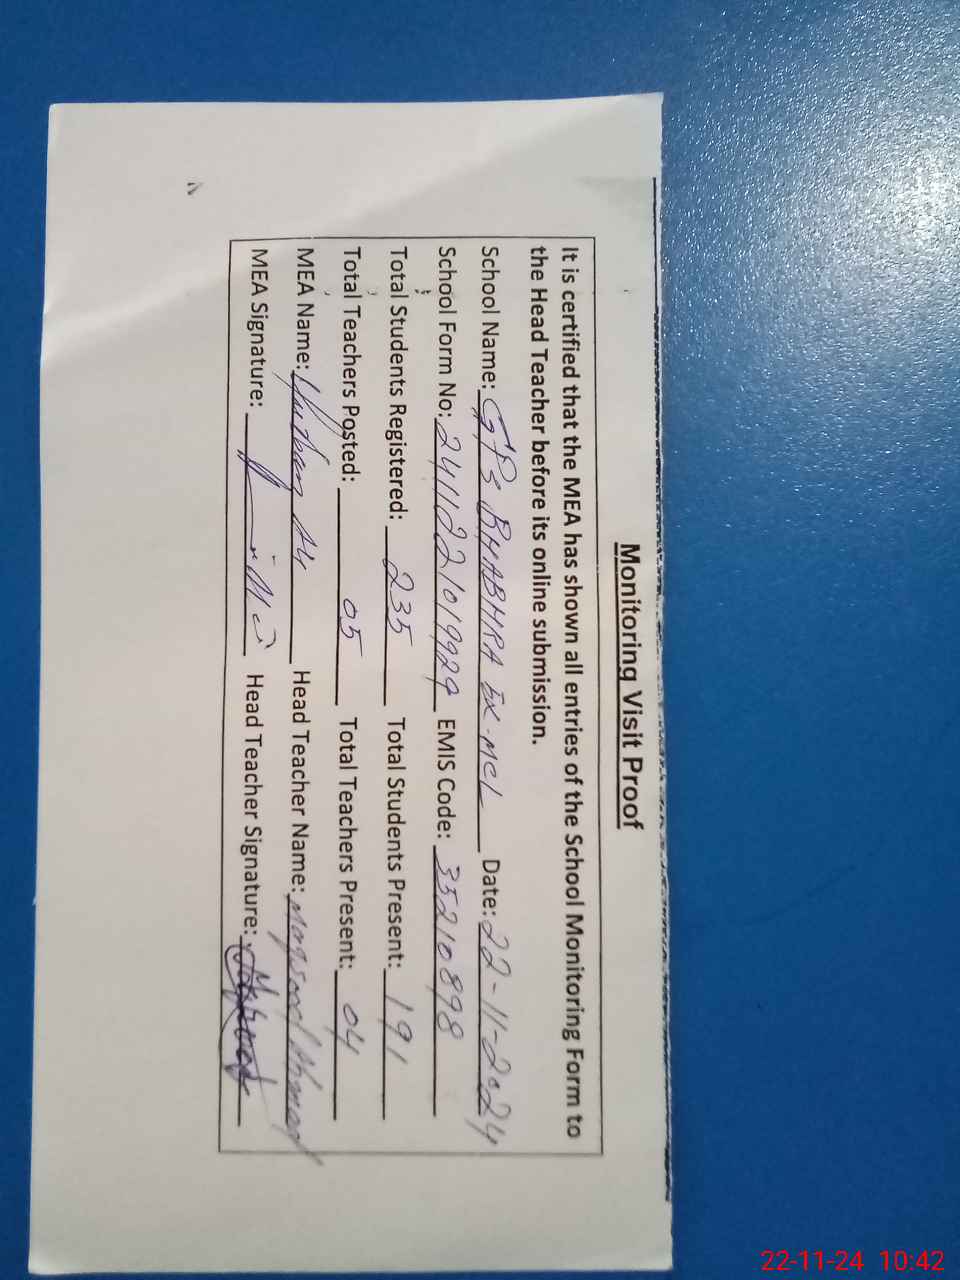 Monitoring Visit Proof
It is certified that the MEA has shown all entries of the School Monitoring Form to
the Head Teacher before its online submission.
School Name: GPS BHABHRA EX-MCL Date: 22-11-2024
School Form No: 241122101992 9 EMIS Code: 35210898
Total Students Registered: 235 Total Students Present: 191
Total Teachers Posted: 05 Total Teachers Present: 04
MEA Name: Head Teacher Name: Maqsood Ahmad
MEA Signature: Head Teacher Signature:
22-11-24 10:42